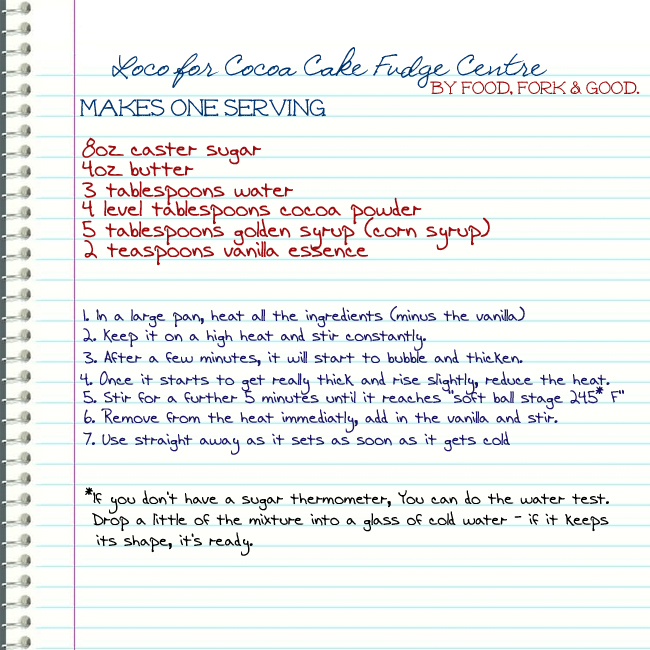 Loco for Cocoa Cake Fudge Centre
BY FOOD, FORK & GOOD.
MAKES ONE SERVING
8oz caster sugar
4oz butter
3 tablespoons water
4 level tablespoons cocoa powder
5 tablespoons golden syrup (corn syrup)
2 teaspoons vanilla essence
1. In a large pan, heat all the ingredients (minus the vanilla)
2. Keep it on a high heat and stir constantly.
3. After a few minutes, it will start to bubble and thicken.
4. Once it starts to get really thick and rise slightly, reduce the heat.
5. Stir for a further 5 minutes until it reaches "soft ball stage 245* F"
6. Remove from the heat immediatly, add in the vanilla and stir.
7. Use straight away as it sets as soon as it gets cold
*If you don't have a sugar thermometer, You can do the water test.
Drop a little of the mixture into a glass of cold water - if it keeps
its shape, it's ready.